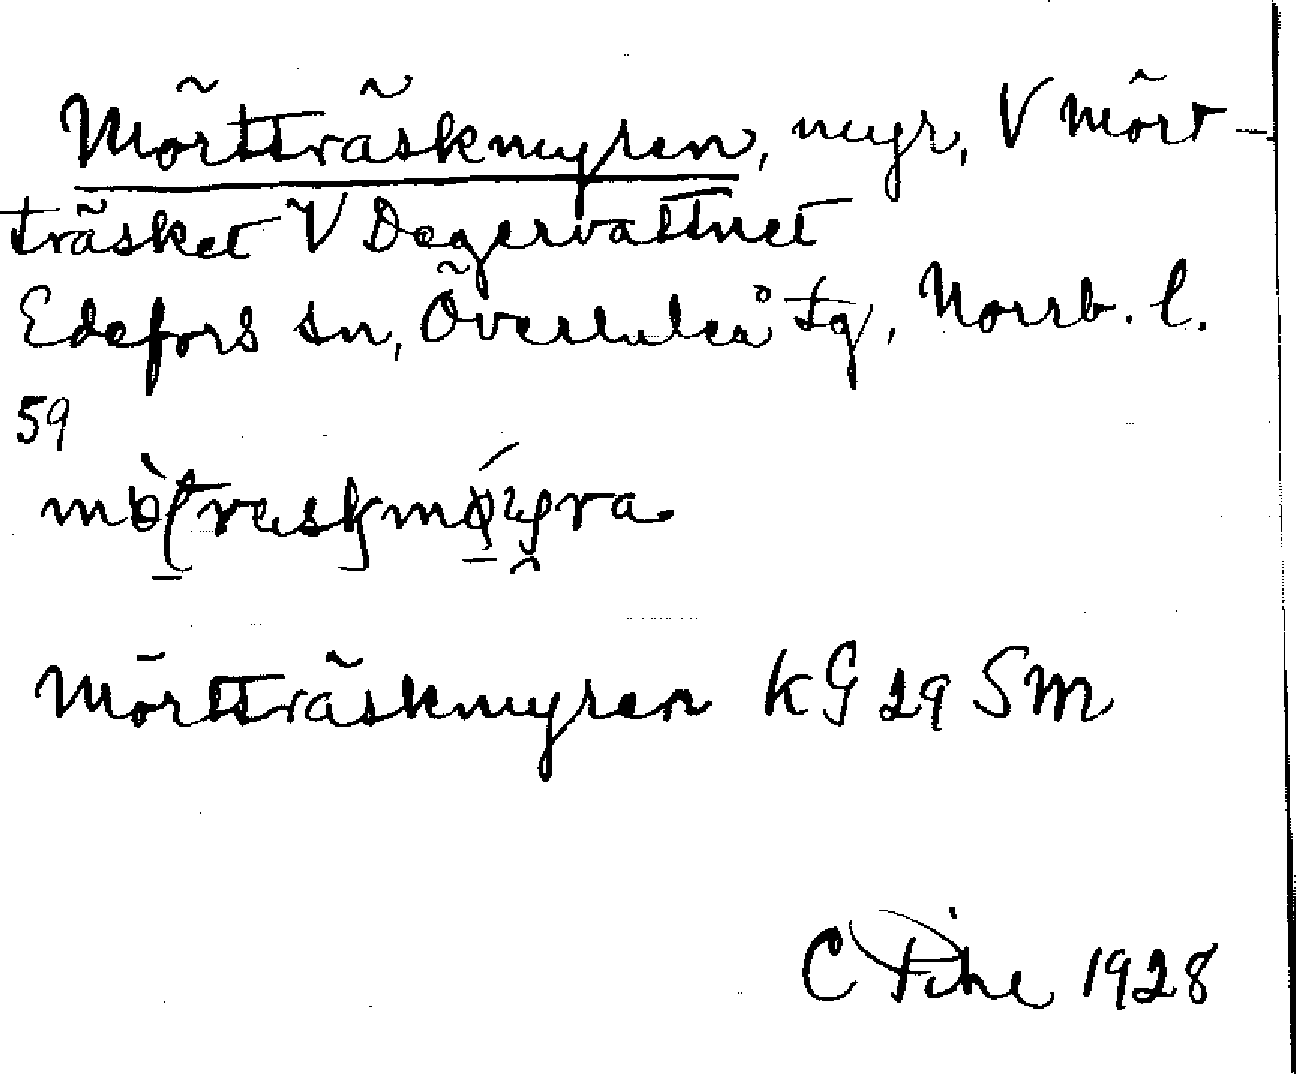 Mörtträskmyren, myr, V Mört-
träsket V Degervattnet
Edefors sn, Överluleå tg, Norrb. l.
59
Mörtträskmyren KG 29 SM
C 1928